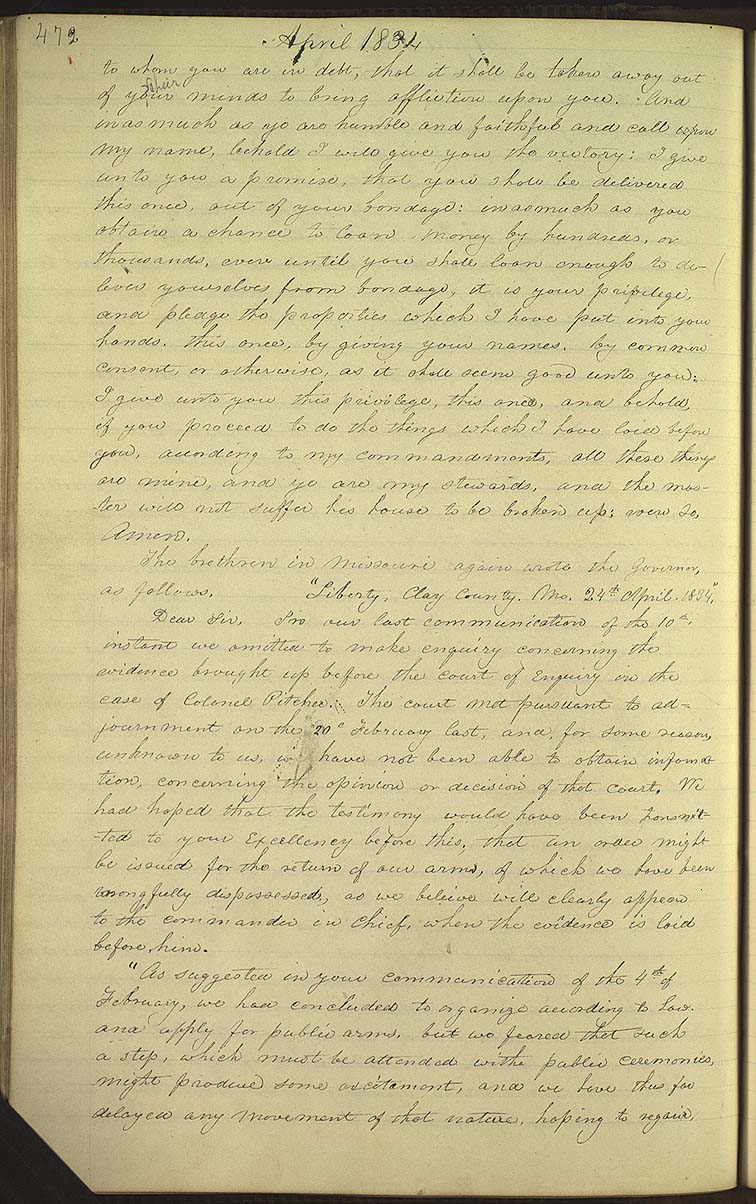 472
April 1834
to whom you are in debt, that it shall be taken away out
of your minds to bring affliction upon you. And
their
inasmuch as ye are humble and faithful and call upon
my name, behold I will give you the victory: I give
unto you a promise, that you shall be delivered
this once, out of your bondage: inasmuch as you
obtain a chance to loan money by hundreds, or
thousands, even until you shall loan enough to de-
liver yourselves from bondage, it is your privilege,
and pledge the properties which I have put into your
hands. this once, by giving your names. by common
consent, or otherwise, as it shall seem good unto you:
I give unto you this privilege, this once, and behold,
if you proceed to do the things which I have laid before
you, according to my commandments, all these things
are mine, and ye are my stewards, and the mas-
ter will not suffer his house to be broken up: even so,
Amen.
The brethren in Missouri again wrote the Governor,
as follows. "Liberty, Clay County. Mo. 24th April. 1834."
Dear Sir, In our last communication of the 10th,
instant we omitted to make enquiry concerning the
evidence brought up before the court of Enquiry in the
case of Colonel Pitcher. The court met pursuant to ad=
journment on the 20th February last, and, for some reason,
unknown to us, we have not been able to obtain informa-
tion, concerning the opinion or decision of that court. We
had hoped that the testimony would have been transmit-
-ted to your Excellency before this, that an order might
be issued for the return of our arms, of which we have been
wrongfully dispossessed, as we believe will clearly appear
to the commander in chief, when the evidence is laid
before him.
"As suggested in your communication of the 4th of
February, we had concluded to organize according to law.
and apply for public arms, but we feared that such
a step, which must be attended with public ceremonies,
might produce some excitement, and we have thus far
delayed any movement of that nature, hoping to regain,